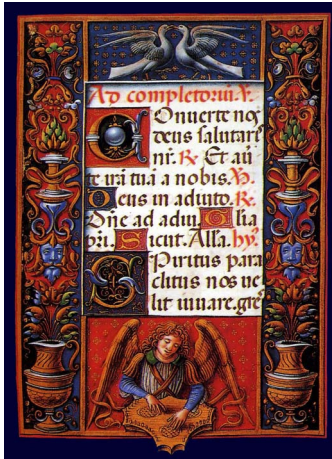 Ad completoriū. ℣.
Conuerte nos
deus salutarˢ
nr̄. ℟. Et au̅
te irā tuā a nobis. ℣.
Deus in adiuto. ℟.
Dn̄e ad adiu. Glīa
pr̄i. Sicut. Alľa. hỹ.
Spiritus para
clitus nos ue
lit iuuare. gre